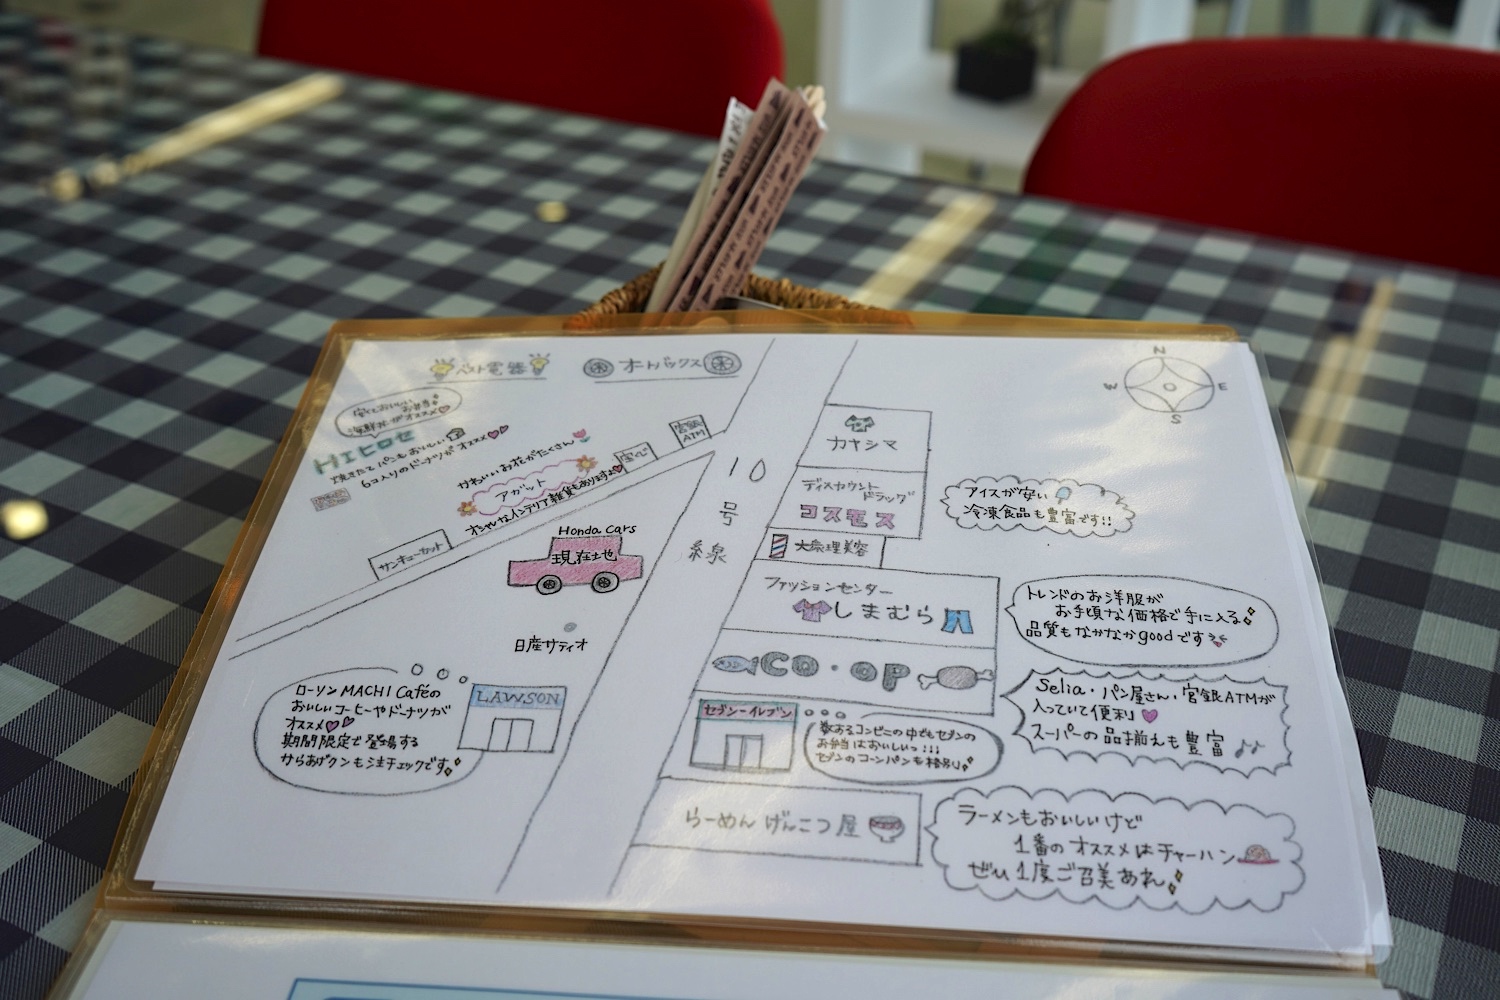 ベスト電器
オートバックス
N
W E
S
安くておいしい
お弁当
海鮮丼がオススメ
HIヒロセ
焼きたてパンもおいしい
6コ入りのドーナツがオススメ
かわいいお花がたくさん
アガット
オシャレなインテリア雑貨もありますよ
宝くじ
宮銀
ATM
サンキューカット
Honda Cars
現在地
日産サティオ
LAWSON
ローソン MACHI Caféの
おいしいコーヒーやドーナツが
オススメ
期間限定で登場する
からあげクンも注チェックです
10
号
線
カキシマ
ディスカウント
ドラッグ
コスモス
アイスが安い
冷凍食品も豊富です!!
大衆理美容
ファッションセンター
しまむら
トレンドのお洋服が
お手頃な価格で手に入る
品質もなかなかgoodです
CO・OP
Selia・パン屋さん・宮銀ATMが
入っていて便利
スーパーの品揃えも豊富
セブン-イレブン
数あるコンビニの中でもセブンの
お弁当はおいしいっ!!!
セブンのコーンパンも格別
らーめん げんこつ屋
ラーメンもおいしいけど
1番のオススメはチャーハン
ぜひ1度ご召美あれ